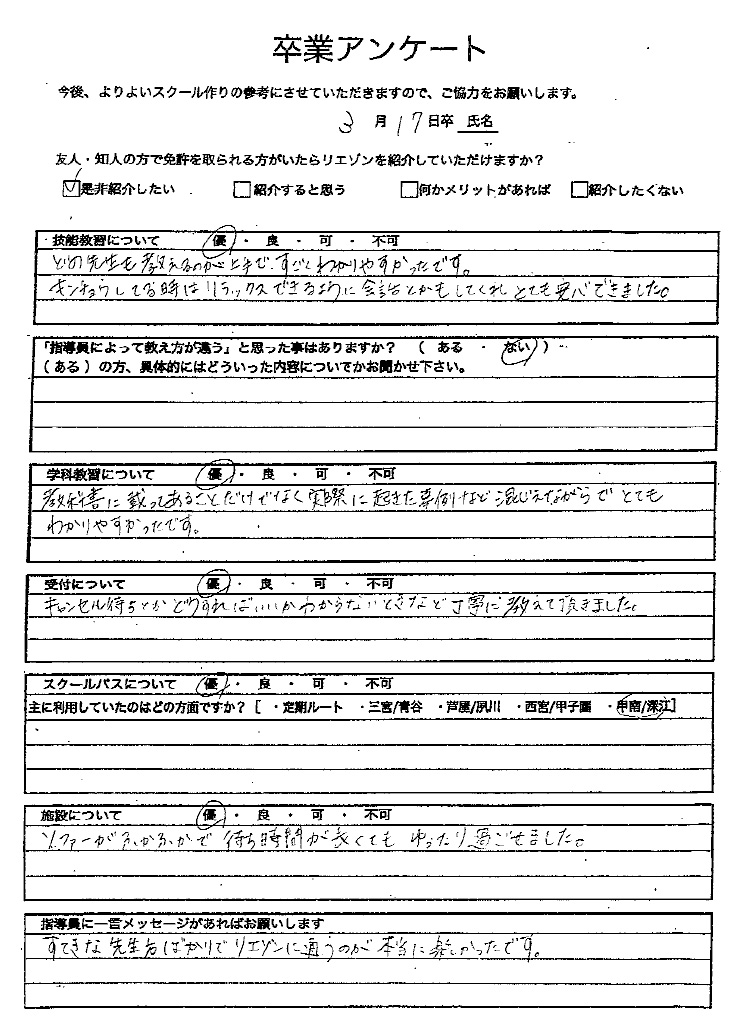 卒業アンケート
今後、よりよいスクール作りの参考にさせていただきますので、ご協力をお願いします。
3月17日卒 氏名
友人・知人の方で免許を取られる方がいたらリエゾンを紹介していただけますか?
是非紹介したい 紹介すると思う 何かメリットがあれば 紹介したくない
技能教習について 優・良・可・不可
どの先生も教えるのが上手で、すごくわかりやすかったです。
キンチョウしてる時はリラックスできるように会話とかもしてくれとても安心できました。
「指導員によって教え方が違う」と思った事はありますか?(ある・ない)
(ある)の方、具体的にはどういった内容についてかお聞かせ下さい。
学科教習について 優・良・可・不可
教科書に載ってあることだけでなく実際に起きた事例など混じえながらでとても
わかりやすかったです。
受付について 優・良・可・不可
キャンセル待ちとかどうすればいいかわからないときなど丁寧に教えて頂きました。
スクールバスについて 優・良・可・不可
主に利用していたのはどの方面ですか?[・定期ルート・三宮/青谷・芦屋/夙川・西宮/甲子園・甲南/深江]
施設について 優・良・可・不可
ソファーがふかふかで待ち時間が長くてもゆったり過ごせました。
指導員に一言メッセージがあればお願いします
すてきな先生方ばかりでリエゾンに通うのが本当に楽しかったです。